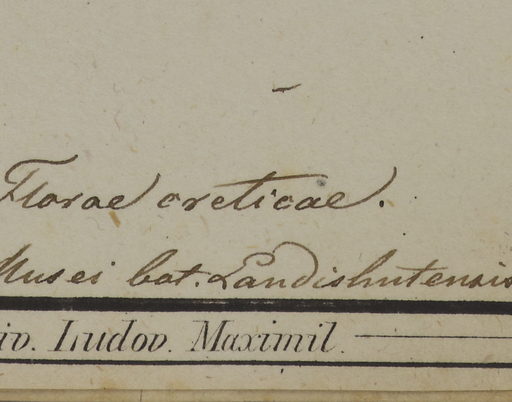 Florae creticae.
Musei bot. Landishutensis
iv. Ludov. Maximil.